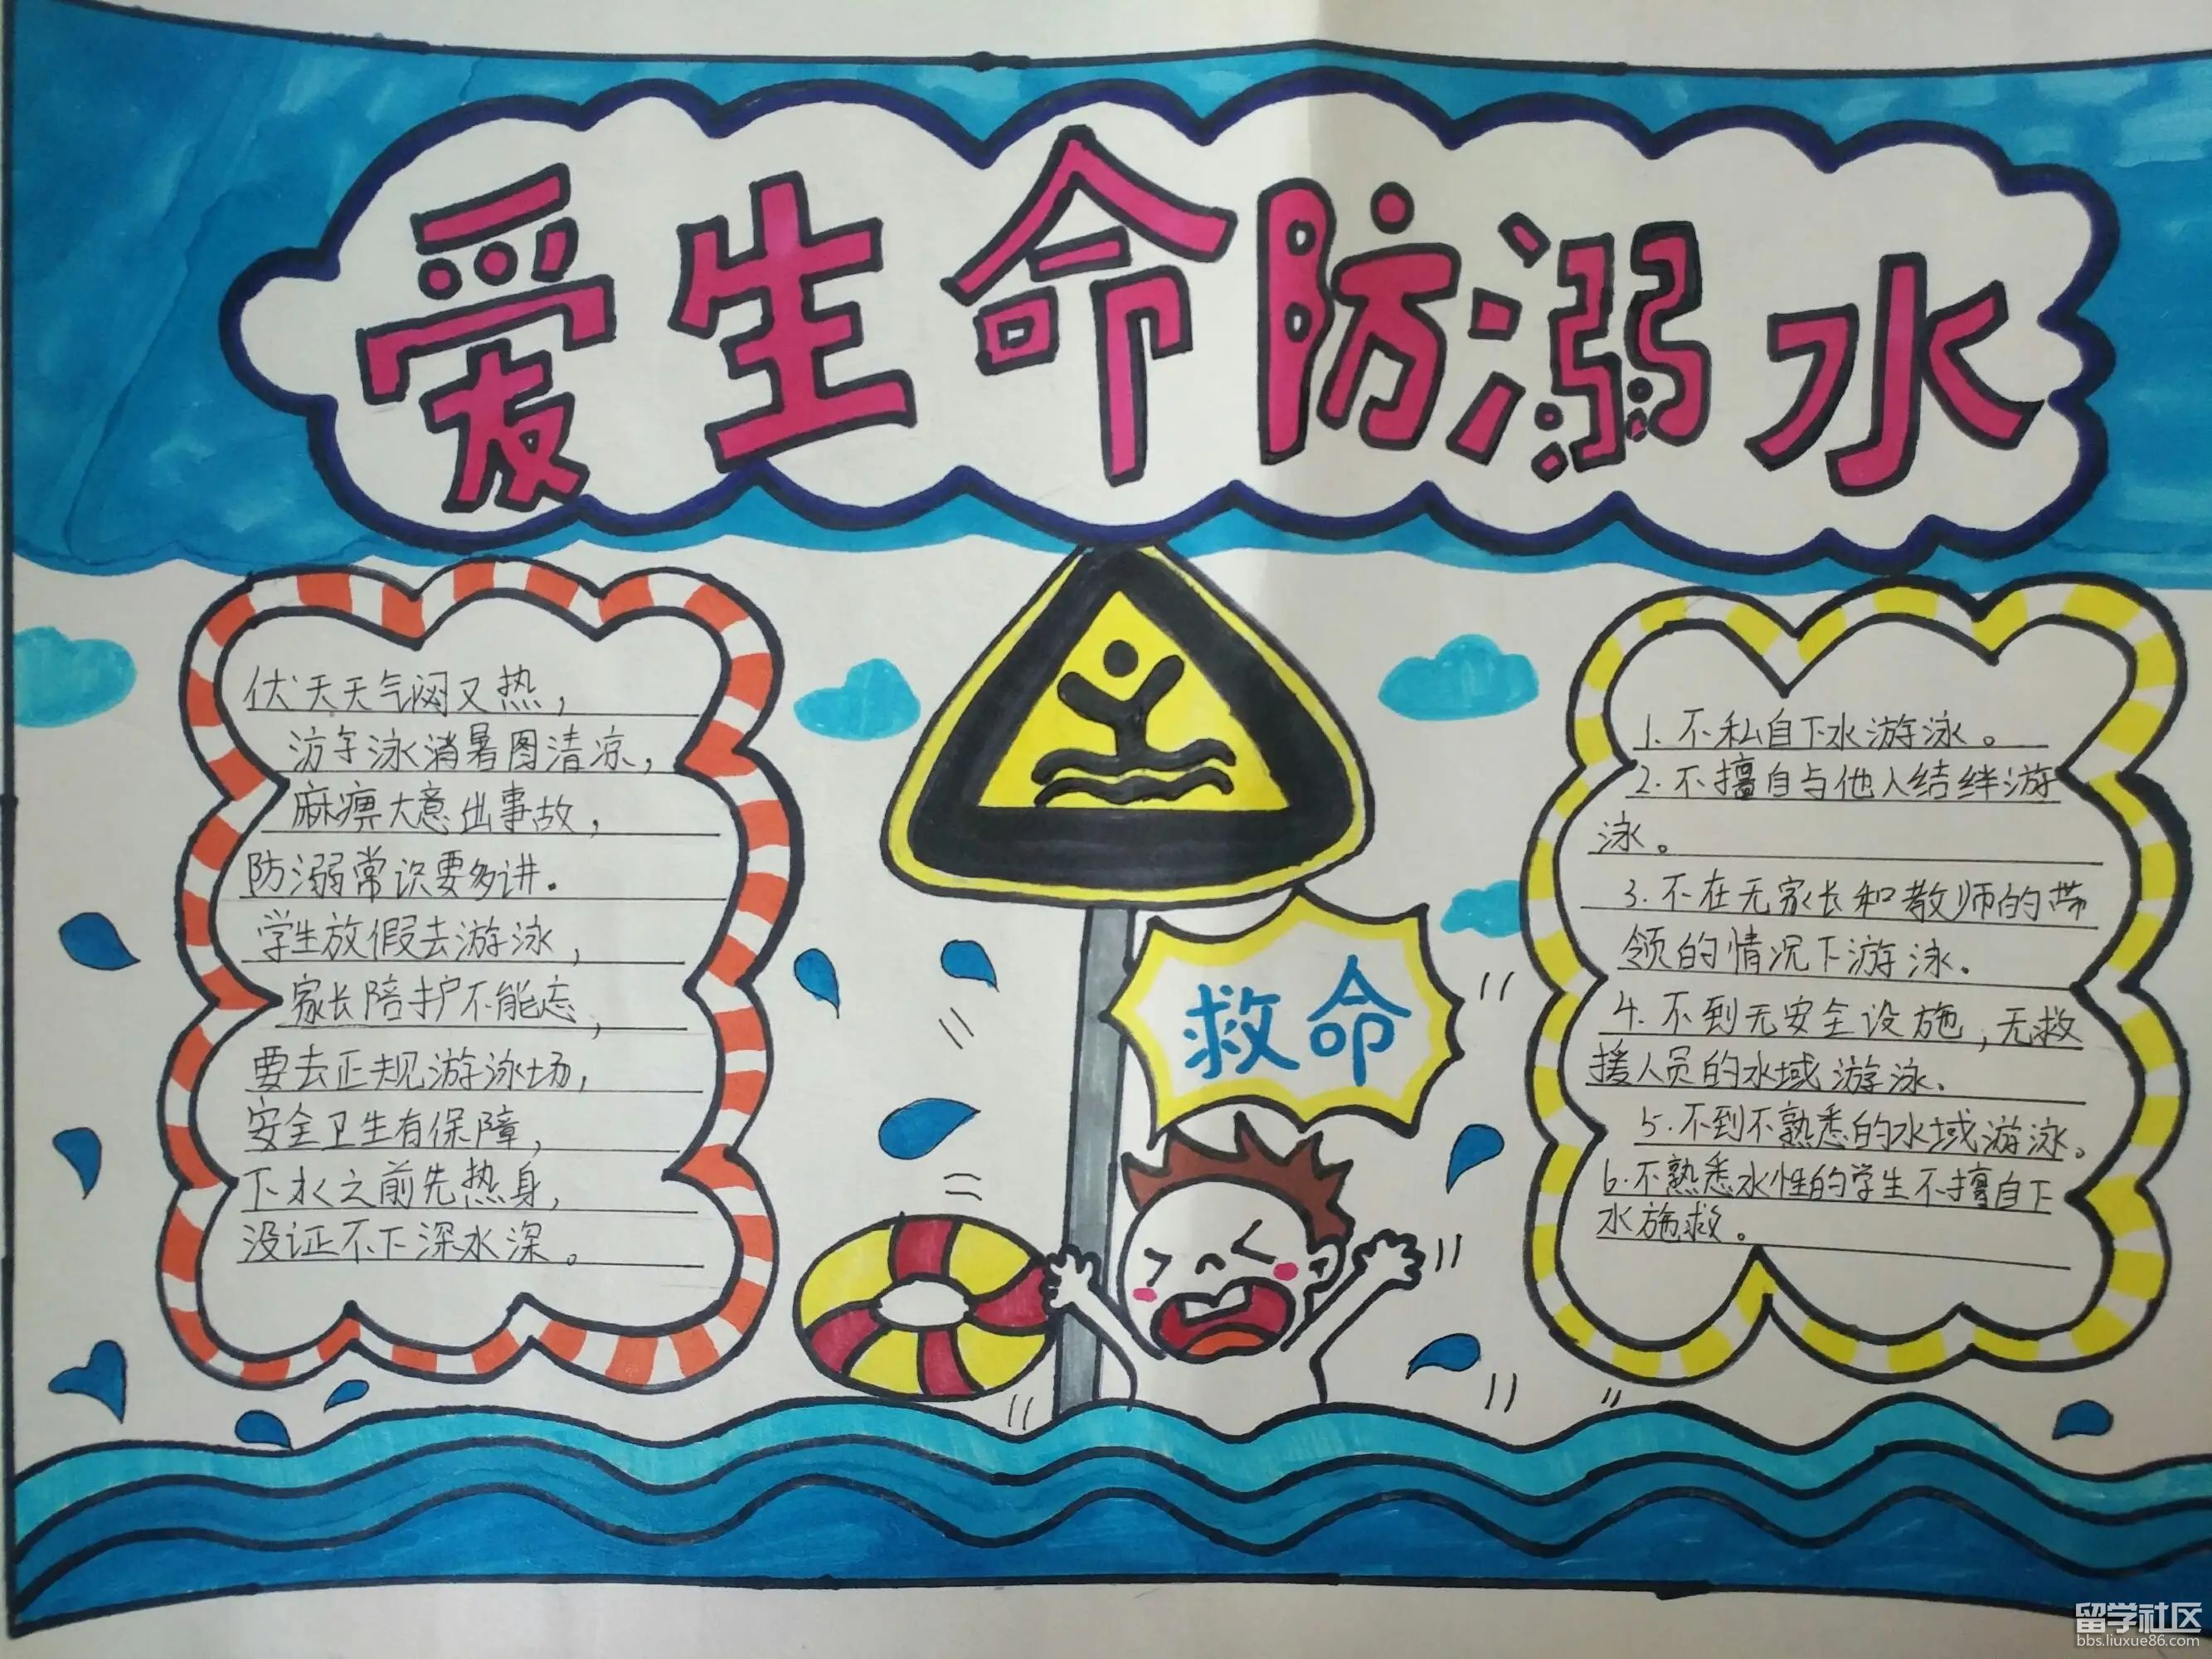 爱生命防溺水
伏天天气闷又热，
游泳消暑图清凉，
麻痹大意出事故，
防溺常识要多讲.
学生放假去游泳，
家长陪护不能忘，
要去正规游泳场，
安全卫生有保障，
下水之前先热身，
没证不下深水深。
救命
1.不私自下水游泳。
2.不擅自与他人结绊游
泳。
3.不在无家长和教师的带
领的情况下游泳.
4.不到无安全设施，无救
援人员的水域游泳.
5.不到不熟悉的水域游泳。
6.不熟悉水性的学生不擅自下
水施救。
留学社区
bbs.liuxue86.com